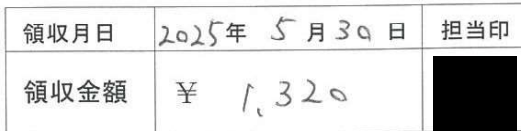 領収月日 2025年 5月30日 担当印
領収金額 ¥ 1,320